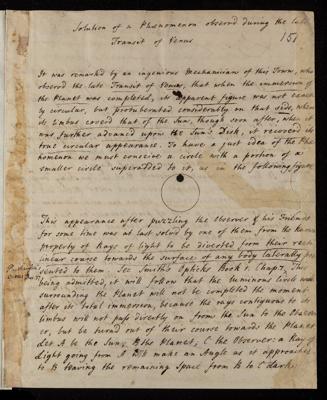 Solution of a Phænomenon observ'd during the late
Transit of Venus
151
It was remark'd by an ingenious Mechanician of this Town, who
observ'd the late Transit of Venus, that when the immersion of
the Planet was completed, its apparent figure was not exact
ly circular, but protuberated considerably on that side, where
its Limbus cover'd that of the Sun, though soon after, when it
was further advanced upon the Sun's Disk, it recover'd its
true circular appearance. To have a just idea of the Phe
nomenon we must conceive a circle with a portion of a
smaller circle superadded to it, as in the following figure.
This appearance after puzzling the Observer & his Friends
for some time was at last solv'd by one of them from the known
property of Rays of light to be diverted from their recti
linear course towards the surface of any body laterally pre
sented to them. See Smith's Opticks Book 1. Chap. 7. This
being admitted, it will follow that the luminous circle
surrounding the Planet will not be completed the moment
after its total immersion, because the rays contiguous to its
limbus will not pass directly on from the Sun to the Obser
ver, but be turn'd out of their course towards the Planet
Let A be the Sun, B the Planet, C the Observer: a Ray of
Light going from A will make an Angle as it approaches
to B leaving the remaining space from B to C dark.